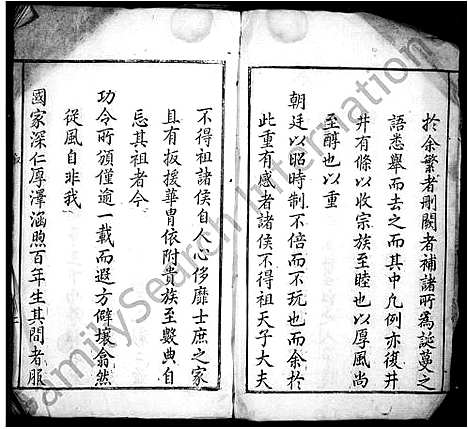 於余繁者刪闕者補諸所為誕蔓之
語悉舉而去之而其中凡例亦復井
井有條以收宗族至睦也以厚風尚
至醇也以重
朝廷以昭時制不倍而不玩也而余於
此重有感者諸侯不得祖天子大夫
不得祖諸侯自人心侈靡士庶之家
且有扳援華胄依附貴族至數典自
忌其祖者今
功令所頒僅逾一載而遐方僻壤翕然
從風自非我
國家深仁厚澤涵煦百年生其間者服
FamilySearch International